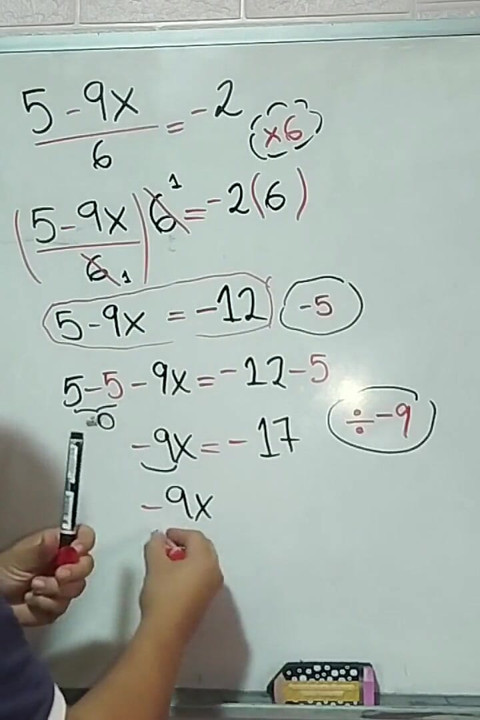 5-9x/6 = -2 ×6
(5-9x/6)6 1 = -2(6)
1
5-9x = -12 -5
5-5-9x = -12-5
=0
-9x = -17 ÷-9
-9x